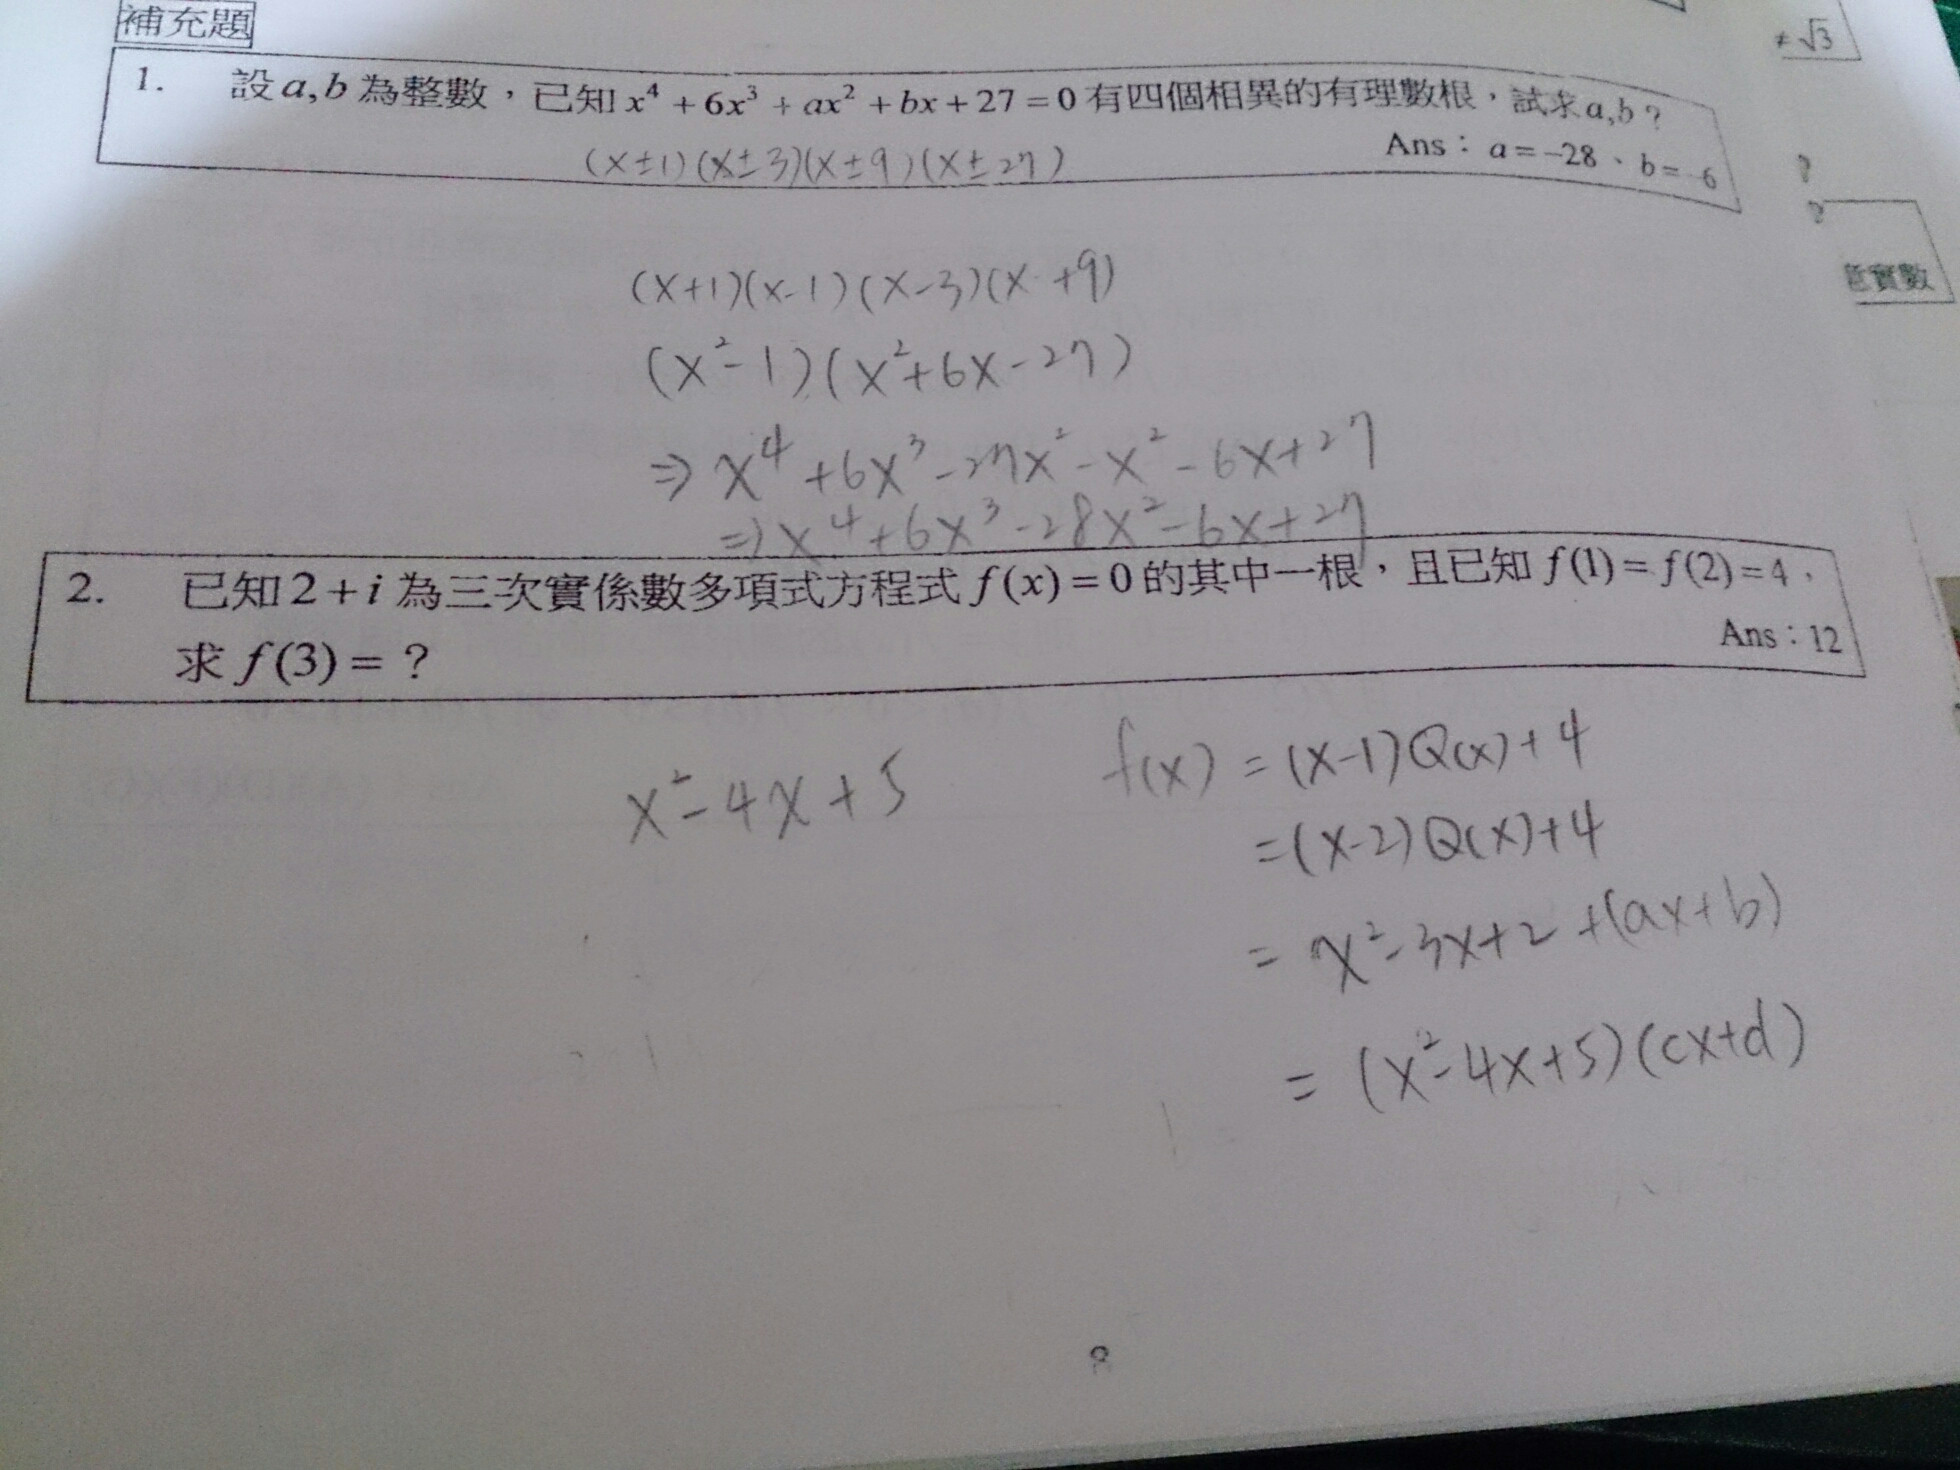 補充題
≠√3
1. 設a,b為整數，已知x⁴+6x³+ax²+bx+27=0有四個相異的有理數根，試求a,b？
(x±1)(x±3)(x±9)(x±27)
Ans：a=-28、b=-6
?
?
意實數
(x+1)(x-1)(x-3)(x+9)
(x²-1)(x²+6x-27)
⇒x⁴+6x³-27x²-x²-6x+27
⇒x⁴+6x³-28x²-6x+27
2. 已知2+i為三次實係數多項式方程式f(x)=0的其中一根，且已知f(1)=f(2)=4，
求f(3)=？
Ans：12
x²-4x+5
f(x)=(x-1)Q(x)+4
=(x-2)Q(x)+4
=x²-3x+2+(ax+b)
=(x²-4x+5)(cx+d)
8